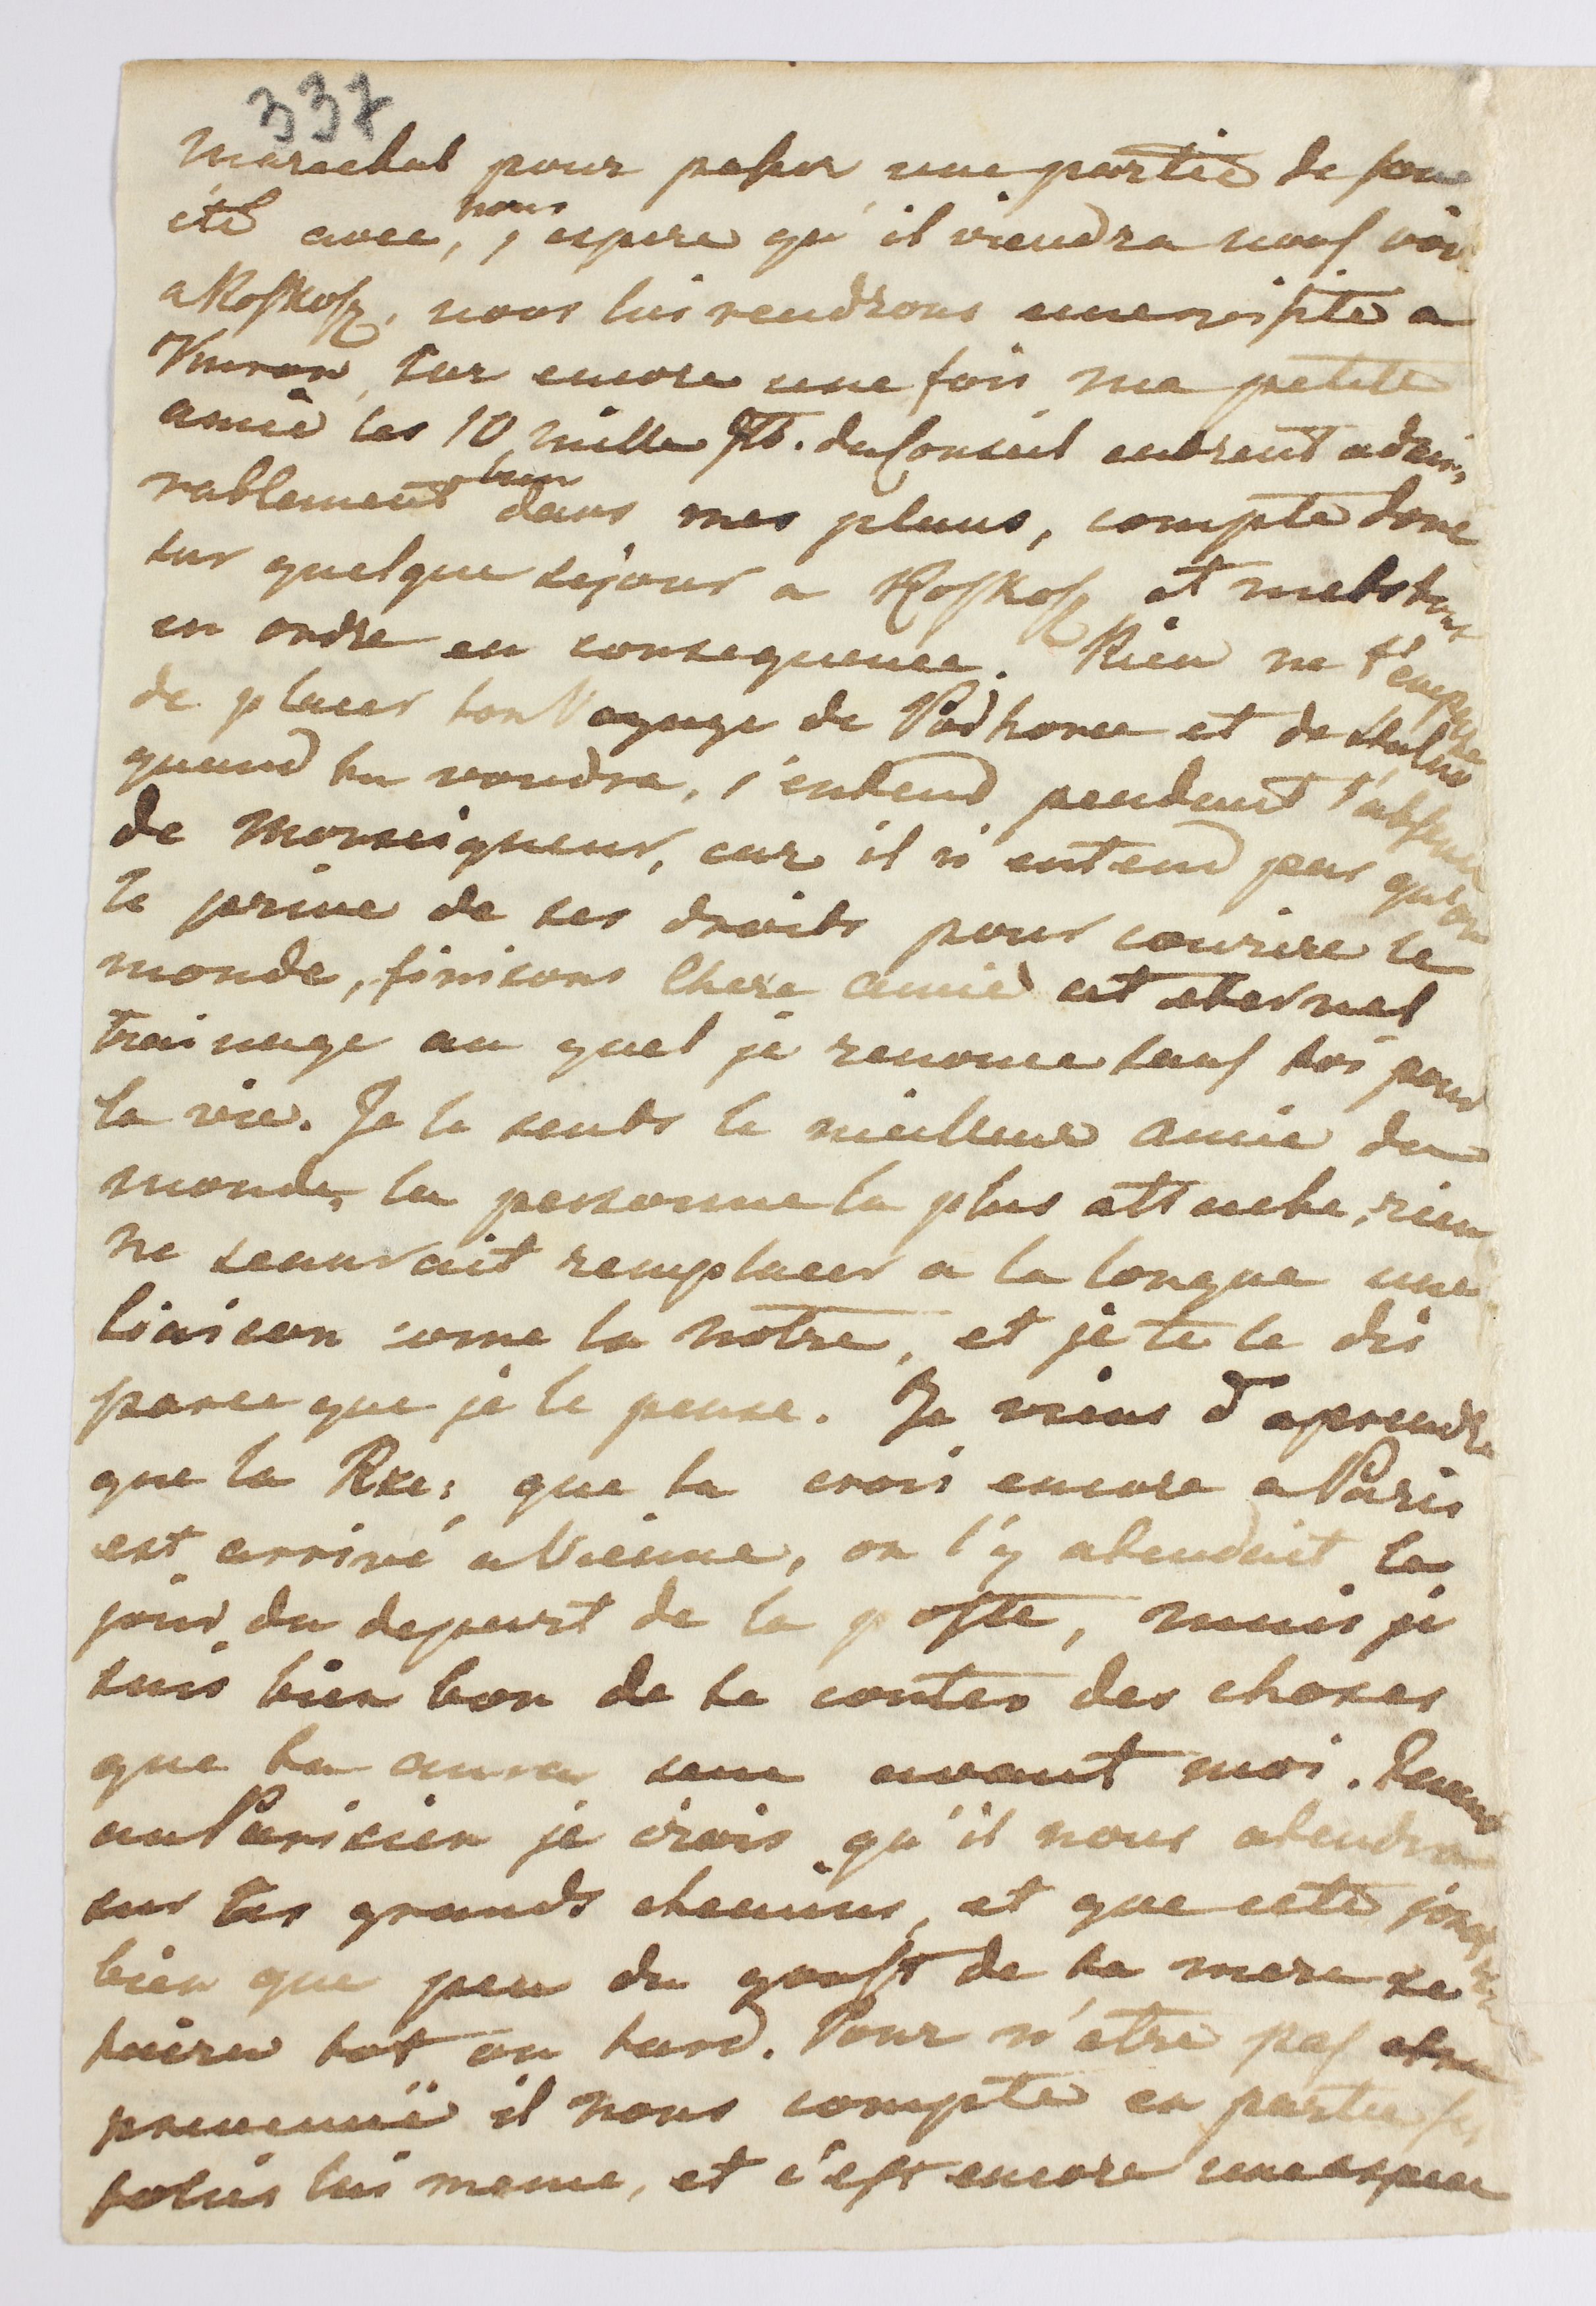 337
Marechal pour passer une partie de son
été avec, nous j'espere qu'il viendra nous voir
a Rosskosz, nous lui rendrons une visite a
car encore une fois ma petite
amie les 10 mille du Conseil entrent admi,
rablement bien dans mes plans, compte donc
sur quelque sejour a Rosskosz et mets tout
en ordre en consequence. Rien ne t'empeche
de placer ton Voyage de Podhorce et de
quand tu voudra, s'entend pendant l'absence
de Monseigneur, car il n'entend pas qu'on
le prive de ses droits pour courire le
monde, finisons Chere amie cet eternel
trainage au quel je renonce sauf toi pour
la vie. Je te sents la meilleure amie du
monde, la personne la plus attache, rien
ne sauroit remplacer a la longue une
liaison come la notre, et je te le dis
parce que je le pense. Je viens d'aprendre
que la Rxe: que tu crois encore a Paris
est arrivé a Vienne, on l'y atendait le
jour du depart de la poste, mais je
suis bien bon de te conter des choses
que tu auras seue avant moi. Quand
au Parisien je crois qu'il nous atendra
sur les grands chemins, et que cete
bien que peu du goust de ta mere se
faira tot ou tard. Pour n'etre pas
prevenuë il nous compte en partie ses
folies lui meme, et c'est encore une espece